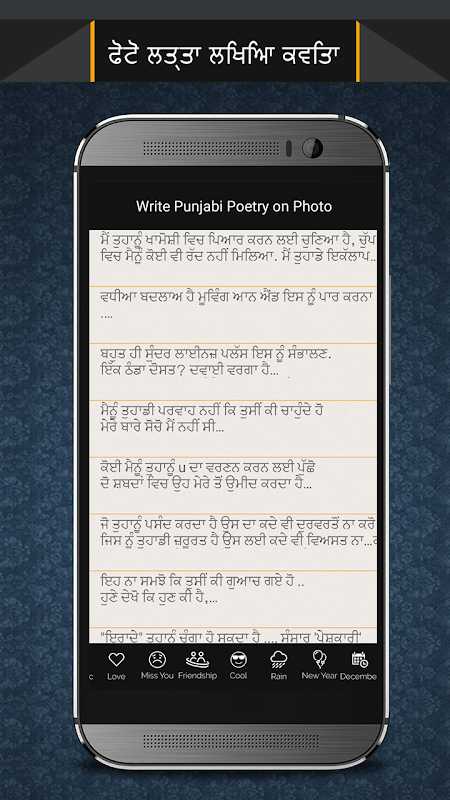 ਫੋਟੋ ਲਤ੍ਤਾ ਲਖਿਆਿ ਕਵਤਿਾ
Write Punjabi Poetry on Photo
ਮੈਂ ਤੁਹਾਨੂੰ ਖਾਮੋਸ਼ੀ ਵਿਚ ਪਿਆਰ ਕਰਨ ਲਈ ਚੁਣਿਆ ਹੈ, ਚੁੱਪ
ਵਿਚ ਮੈਨੂੰ ਕੋਈ ਵੀ ਰੱਦ ਨਹੀਂ ਮਿਲਿਆ. ਮੈਂ ਤੁਹਾਡੇ ਇਕੱਲਾਪ...
ਵਧੀਆ ਬਦਲਾਅ ਹੈ ਮੂਵਿੰਗ ਆਨ ਐਂਡ ਇਸ ਨੂੰ ਪਾਰ ਕਰਨਾ
....
ਬਹੁਤ ਹੀ ਸੁੰਦਰ ਲਾਈਨਜ਼ ਪਲੱਸ ਇਸ ਨੂੰ ਸੰਭਾਲਣ.
ਇੱਕ ਠੰਡਾ ਦੋਸਤ? ਦਵਾਈ ਵਰਗਾ ਹੈ...
ਮੈਨੂੰ ਤੁਹਾਡੀ ਪਰਵਾਹ ਨਹੀਂ ਕਿ ਤੁਸੀਂ ਕੀ ਚਾਹੁੰਦੇ ਹੋ
ਮੇਰੇ ਬਾਰੇ ਸੋਚੋ ਮੈਂ ਨਹੀਂ ਸੀ...
ਕੋਈ ਮੈਨੂੰ ਤੁਹਾਨੂੰ u ਦਾ ਵਰਣਨ ਕਰਨ ਲਈ ਪੁੱਛੋ
ਦੋ ਸ਼ਬਦਾਂ ਵਿਚ ਉਹ ਮੇਰੇ ਤੋਂ ਉਮੀਦ ਕਰਦਾ ਹੈ...
ਜੋ ਤੁਹਾਨੂੰ ਪਸੰਦ ਕਰਦਾ ਹੈ ਉਸ ਦਾ ਕਦੇ ਵੀ ਦੁਰਵਰਤੋਂ ਨਾ ਕਰੋ
ਜਿਸ ਨੂੰ ਤੁਹਾਡੀ ਜ਼ਰੂਰਤ ਹੈ ਉਸ ਲਈ ਕਦੇ ਵੀ ਵਿਅਸਤ ਨਾ...ਕ
ਇਹ ਨਾ ਸਮਝੋ ਕਿ ਤੁਸੀਂ ਕੀ ਗੁਆਚ ਗਏ ਹੋ ..
ਹੁਣੇ ਦੇਖੋ ਕਿ ਹੁਣ ਕੀ ਹੈ,...
"ਇਰਾਦੇ" ਤੁਹਾਨੂੰ ਚੰਗਾ ਹੋ ਸਕਦਾ ਹੈ .... ਸੰਸਾਰ 'ਪੇਸ਼ਕਾਰੀ'
c Love Miss You Friendship Cool Rain New Year Decembe